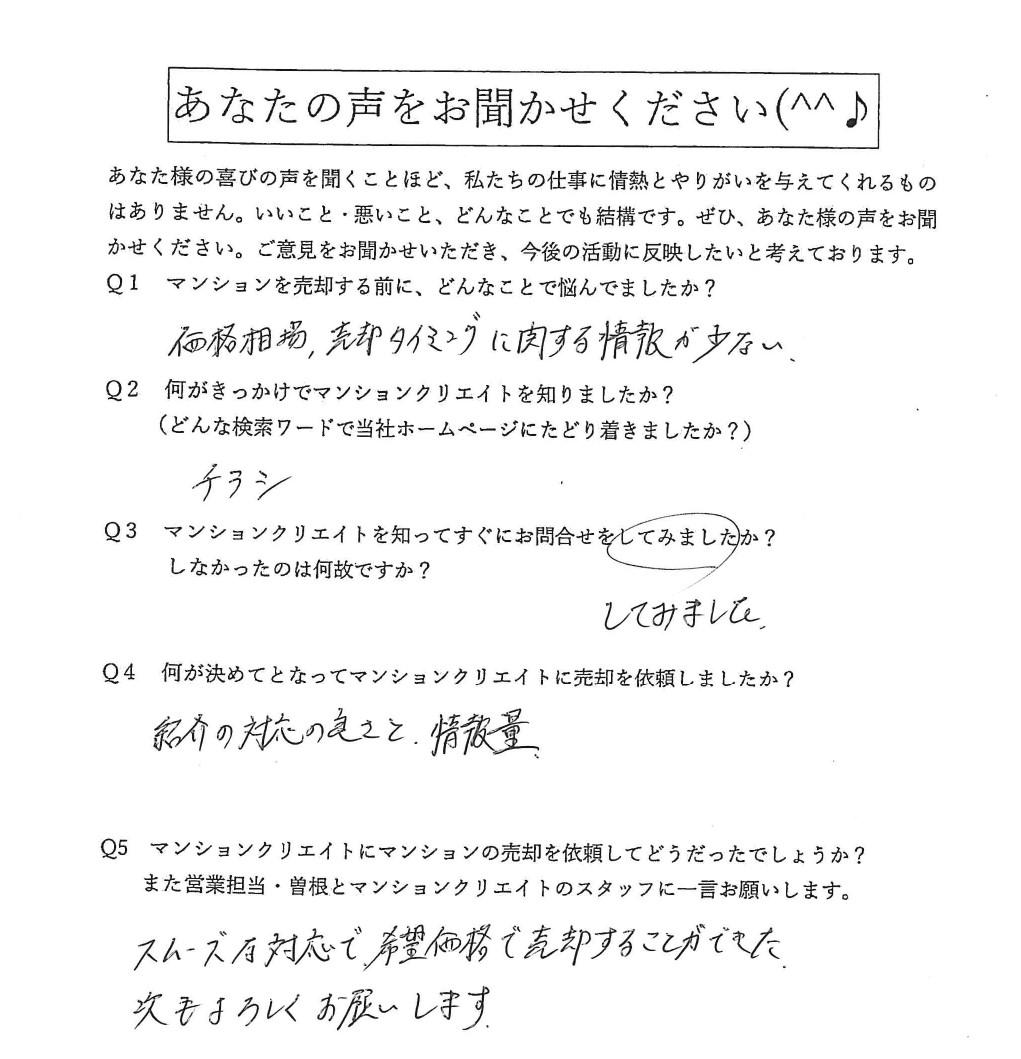 あなたの声をお聞かせください(^^♪
あなた様の喜びの声を聞くことほど、私たちの仕事に情熱とやりがいを与えてくれるもの
はありません。いいこと・悪いこと、どんなことでも結構です。ぜひ、あなた様の声をお聞
かせください。ご意見をお聞かせいただき、今後の活動に反映したいと考えております。
Q1 マンションを売却する前に、どんなことで悩んでましたか？
価格相場，売却タイミングに関する情報が少ない．
Q2 何がきっかけでマンションクリエイトを知りましたか？
（どんな検索ワードで当社ホームページにたどり着きましたか？）
チラシ
Q3 マンションクリエイトを知ってすぐにお問合せをしてみましたか？
しなかったのは何故ですか？
してみました．
Q4 何が決めてとなってマンションクリエイトに売却を依頼しましたか？
紹介の対応の良さと．情報量．
Q5 マンションクリエイトにマンションの売却を依頼してどうだったでしょうか？
また営業担当・曽根とマンションクリエイトのスタッフに一言お願いします。
スムーズな対応で，希望価格で売却することができた．
次もよろしくお願いします．